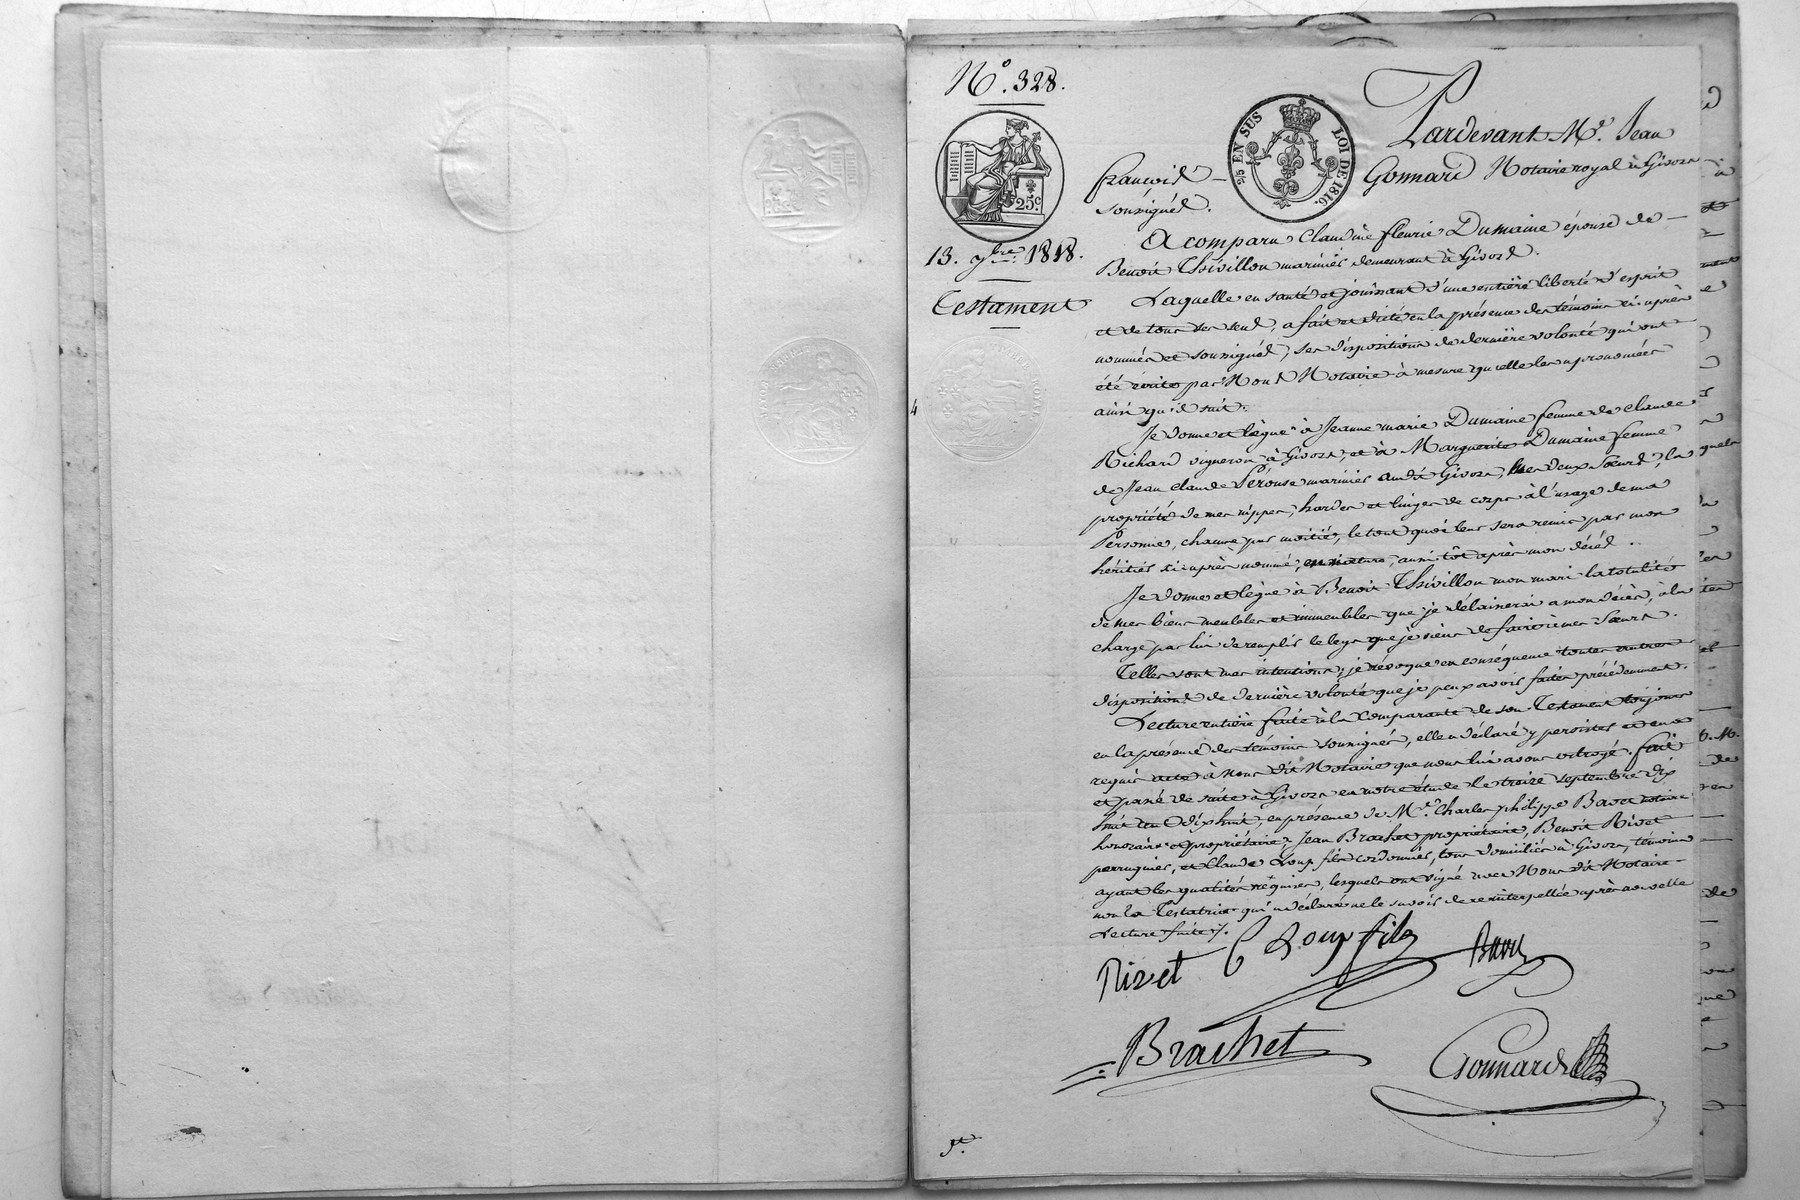 N.° 328.
25.c
13. 7bre. 1818.
Testament
2/5 EN SUS LOI DE 1816.
Pardevant M.e Jean
François Gonnard Notaire royal à Givors
soussigné.
A comparu Claudine fleurie Dumaine épouse de
Benoit Thivillon marinier demeurant à Givors.
Laquelle en santé et jouissant d'une entière liberté d'esprit
et de tous ses sens, a fait et dicté en la présence des témoins ci-après
nommés et soussignés, ses dispositions de dernière volonté qui ont
été écrites par Nous Notaire à mesure qu'elle les a prononcées
ainsi qu'il suit.
Je donne et lègue à Jeanne marie Dumaine femme de claude
Richard vigneron à Givors, et à Marguerite Dumaine femme
de Jean claude Pérouse marinier audit Givors, mes deux Sœurs, la
propriété de mes nippes, hardes et linges de corps à l'usage de ma
Personne, chacune par moitié, le tout quoi leur sera remis par mon
héritier ci-après nommé, en nature, aussitôt après mon décès.
Je donne et lègue à Benoit Thivillon mon mari la totalité
de mes biens meubles et immeubles que je délaisserai a mon décès, à la
charge par lui de remplir le legs que je viens de faire à mes Sœurs.
Telles sont mes intentions; je révoque en conséquence toutes autres
dispositions de dernière volonté que je peux avoir faites précédemment.
Lecture entière faite à la Comparante de son Testament toujours
en la présence des témoins soussignés, elle a déclaré y persister et en a
requis acte à Nous dit Notaire que nous lui avons octroyé. fait
et passé de suite à Givors en notre étude le treize septembre dix
huit cent dix huit, en présence de M.r Charles philippe Bavet notaire
honoraire et propriétaire, Jean Brachet propriétaire, Benoit Rivet
perruquier, et Claude Loup fils cordonnier, tous domiciliés à Givors, témoins
ayant les qualités requises, lesquels ont signé avec Nous dit Notaire
non la Testatrice qui a déclaré ne le savoir de ce interpellée après nouvelle
Lecture faite /.
Rivet C Loup fils Bavet
Brachet
Gonnard